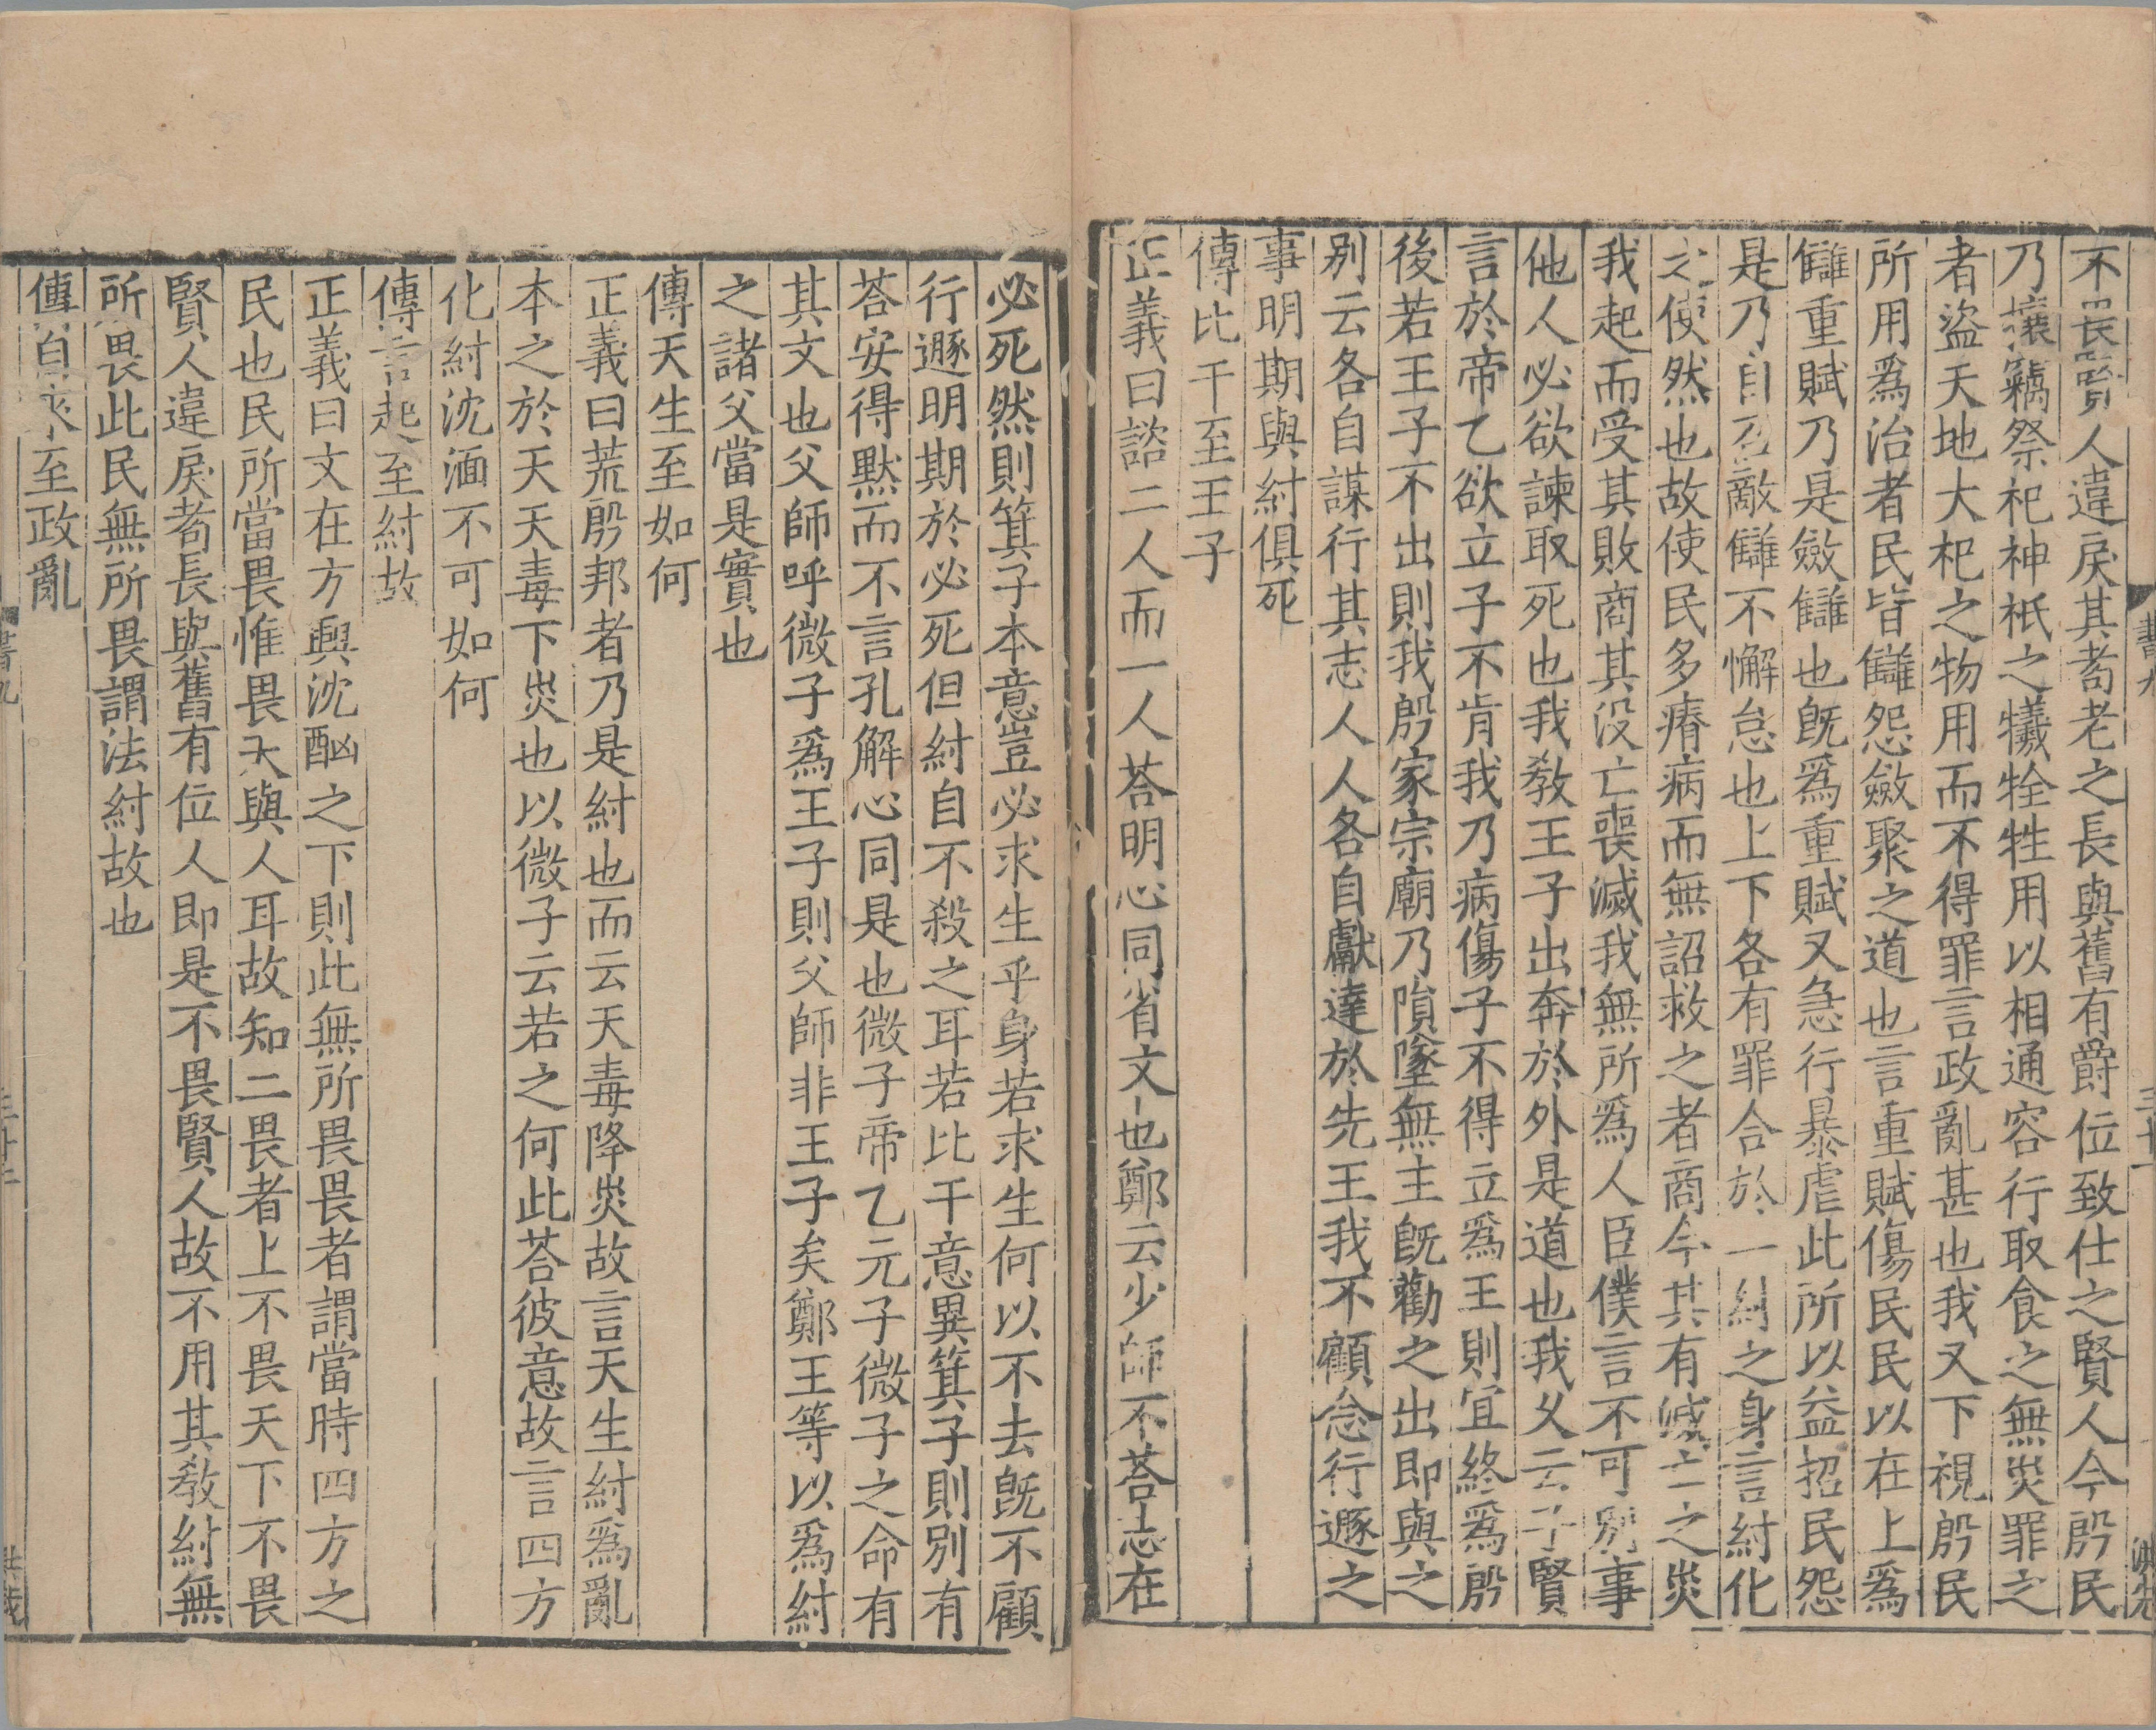 不畏賢人違戾其耈老之長與舊有爵位致仕之賢人今殷民
乃攘竊祭祀神祇之犧牷牲用以相通容行取食之無災罪之
者盜天地大祀之物用而不得罪言政亂甚也我又下視殷民
所用爲治者民皆讎怨斂聚之道也言重賦傷民民以在上爲
讎重賦乃是斂讎也旣爲重賦又急行暴虐此所以益招民怨
是乃自召敵讎不懈怠也上下各有罪合於一紂之身言紂化
之使然也故使民多瘠病而無詔救之者商今其有滅亡之災
我起而受其敗商其没亡喪滅我無所爲人臣僕言不可別事
他人必欲諫取死也我敎王子出奔於外是道也我乂云子賢
言於帝乙欲立子不肯我乃病傷子不得立爲王則宜終爲殷
後若王子不出則我殷家宗廟乃隕墜無主旣勸之出即與之
別云各自謀行其志人人各自獻達於先王我不顧念行遯之
事明期與紂俱死
傳比干至王子
正義曰諮二人而一人荅明心同省文也鄭云少師不荅志在
必死然則箕子本意豈必求生乎身若求生何以不去旣不顧
行遯明期於必死但紂自不殺之耳若比干意異箕子則別有
荅安得默而不言孔解心同是也微子帝乙元子微子之命有
其文也父師呼微子爲王子則父師非王子矣鄭王等以爲紂
之諸父當是實也
傳天生至如何
正義曰荒殷邦者乃是紂也而云天毒降災故言天生紂爲亂
本之於天天毒下災也以微子云若之何此荅彼意故言四方
化紂沈湎不可如何
傳言起至紂故
正義曰文在方興沈酗之下則此無所畏畏者謂當時四方之
民也民所當畏惟畏天與人耳故知二畏者上不畏天下不畏
賢人違戾耈長與舊有位人即是不畏賢人故不用其敎紂無
所畏此民無所畏謂法紂故也
傳自來至政亂